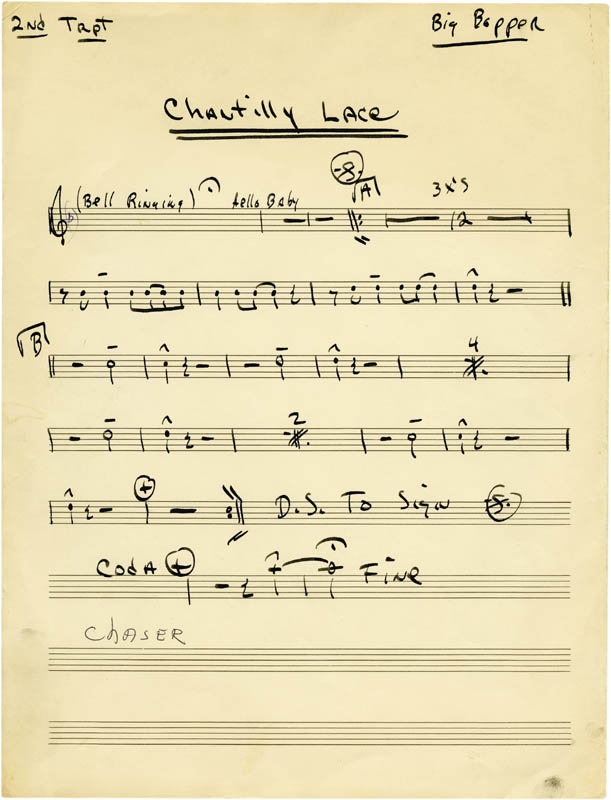 2nd Trpt Big Bopper
Chantilly Lace
(Bell Ringing) Hello Baby A 3x's
12
B 4
2
D.S. To Sign
Coda Fine
Chaser